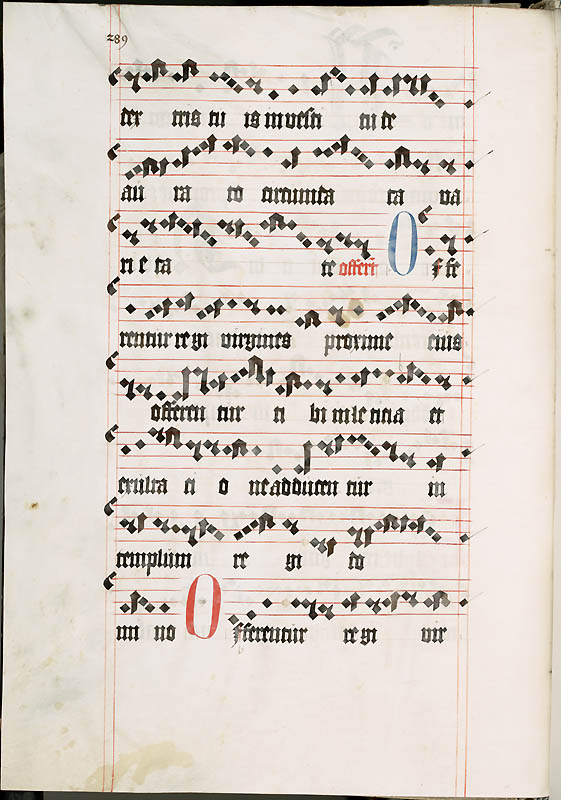 289
dex tris tu is in vesti tu de
au ra to circumda ta va
ri e ta te offert O f fe
rentur re gi virgines proxime eius
offeren tur ti bi in leticia et
exulta ti o ne adducen tur in
templum re gi do
mi no O fferentur re gi vir